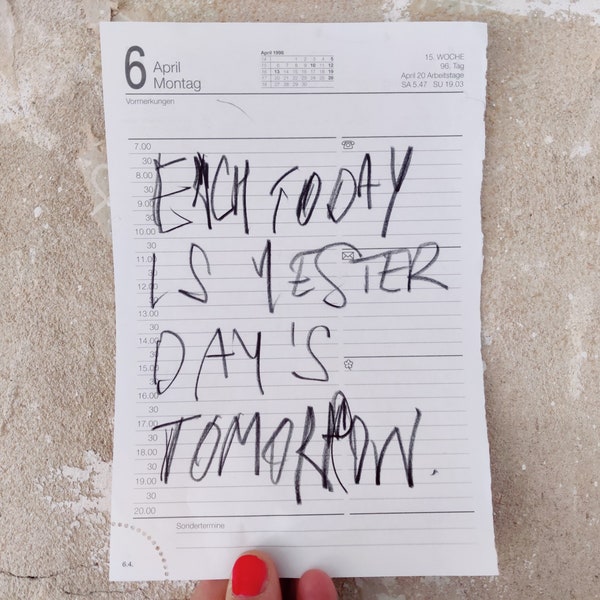 6
April
Montag
April 1998
15. WOCHE
96. Tag
April 20 Arbeitstage
SA 5.47 SU 19.03
Vormerkungen
7.00
30
8.00
30
9.00
30
10.00
30
11.00
30
12.00
30
13.00
30
14.00
30
15.00
30
16.00
30
17.00
30
18.00
30
19.00
30
20.00
EACH TODAY
IS YESTER
DAY'S
TOMORROW.
Sondertermine
6.4.